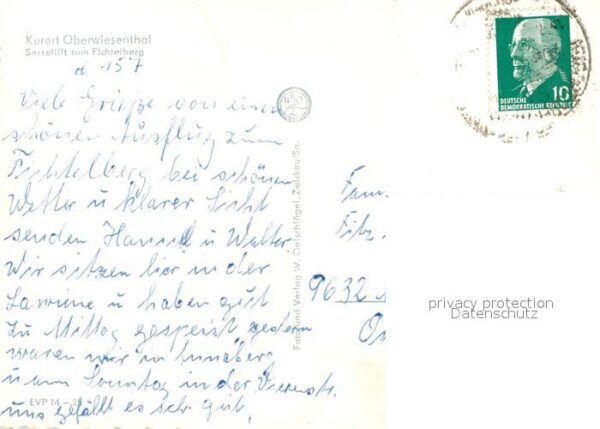 Kurort Oberwiesenthal
Sessellift zum Fichtelberg
d. 15 7
Viele Grüße von einem
schönen Ausflug zum
Fichtelberg bei schönen
Wetter u klarer Sicht
senden Hannel u Walter.
Wir sitzen hier in der
u haben gut
zu Mittag gespeist, gestern
waren wir in Annaberg
u am Sonntag in der
uns gefällt es sehr gut.
EVP M –
Foto und Verlag W. Oelschlägel, Zwickau Sa.
10
DEUTSCHE
DEMOKRATISCHE REPUBLIK
Fam.
9632
privacy protection
Datenschutz